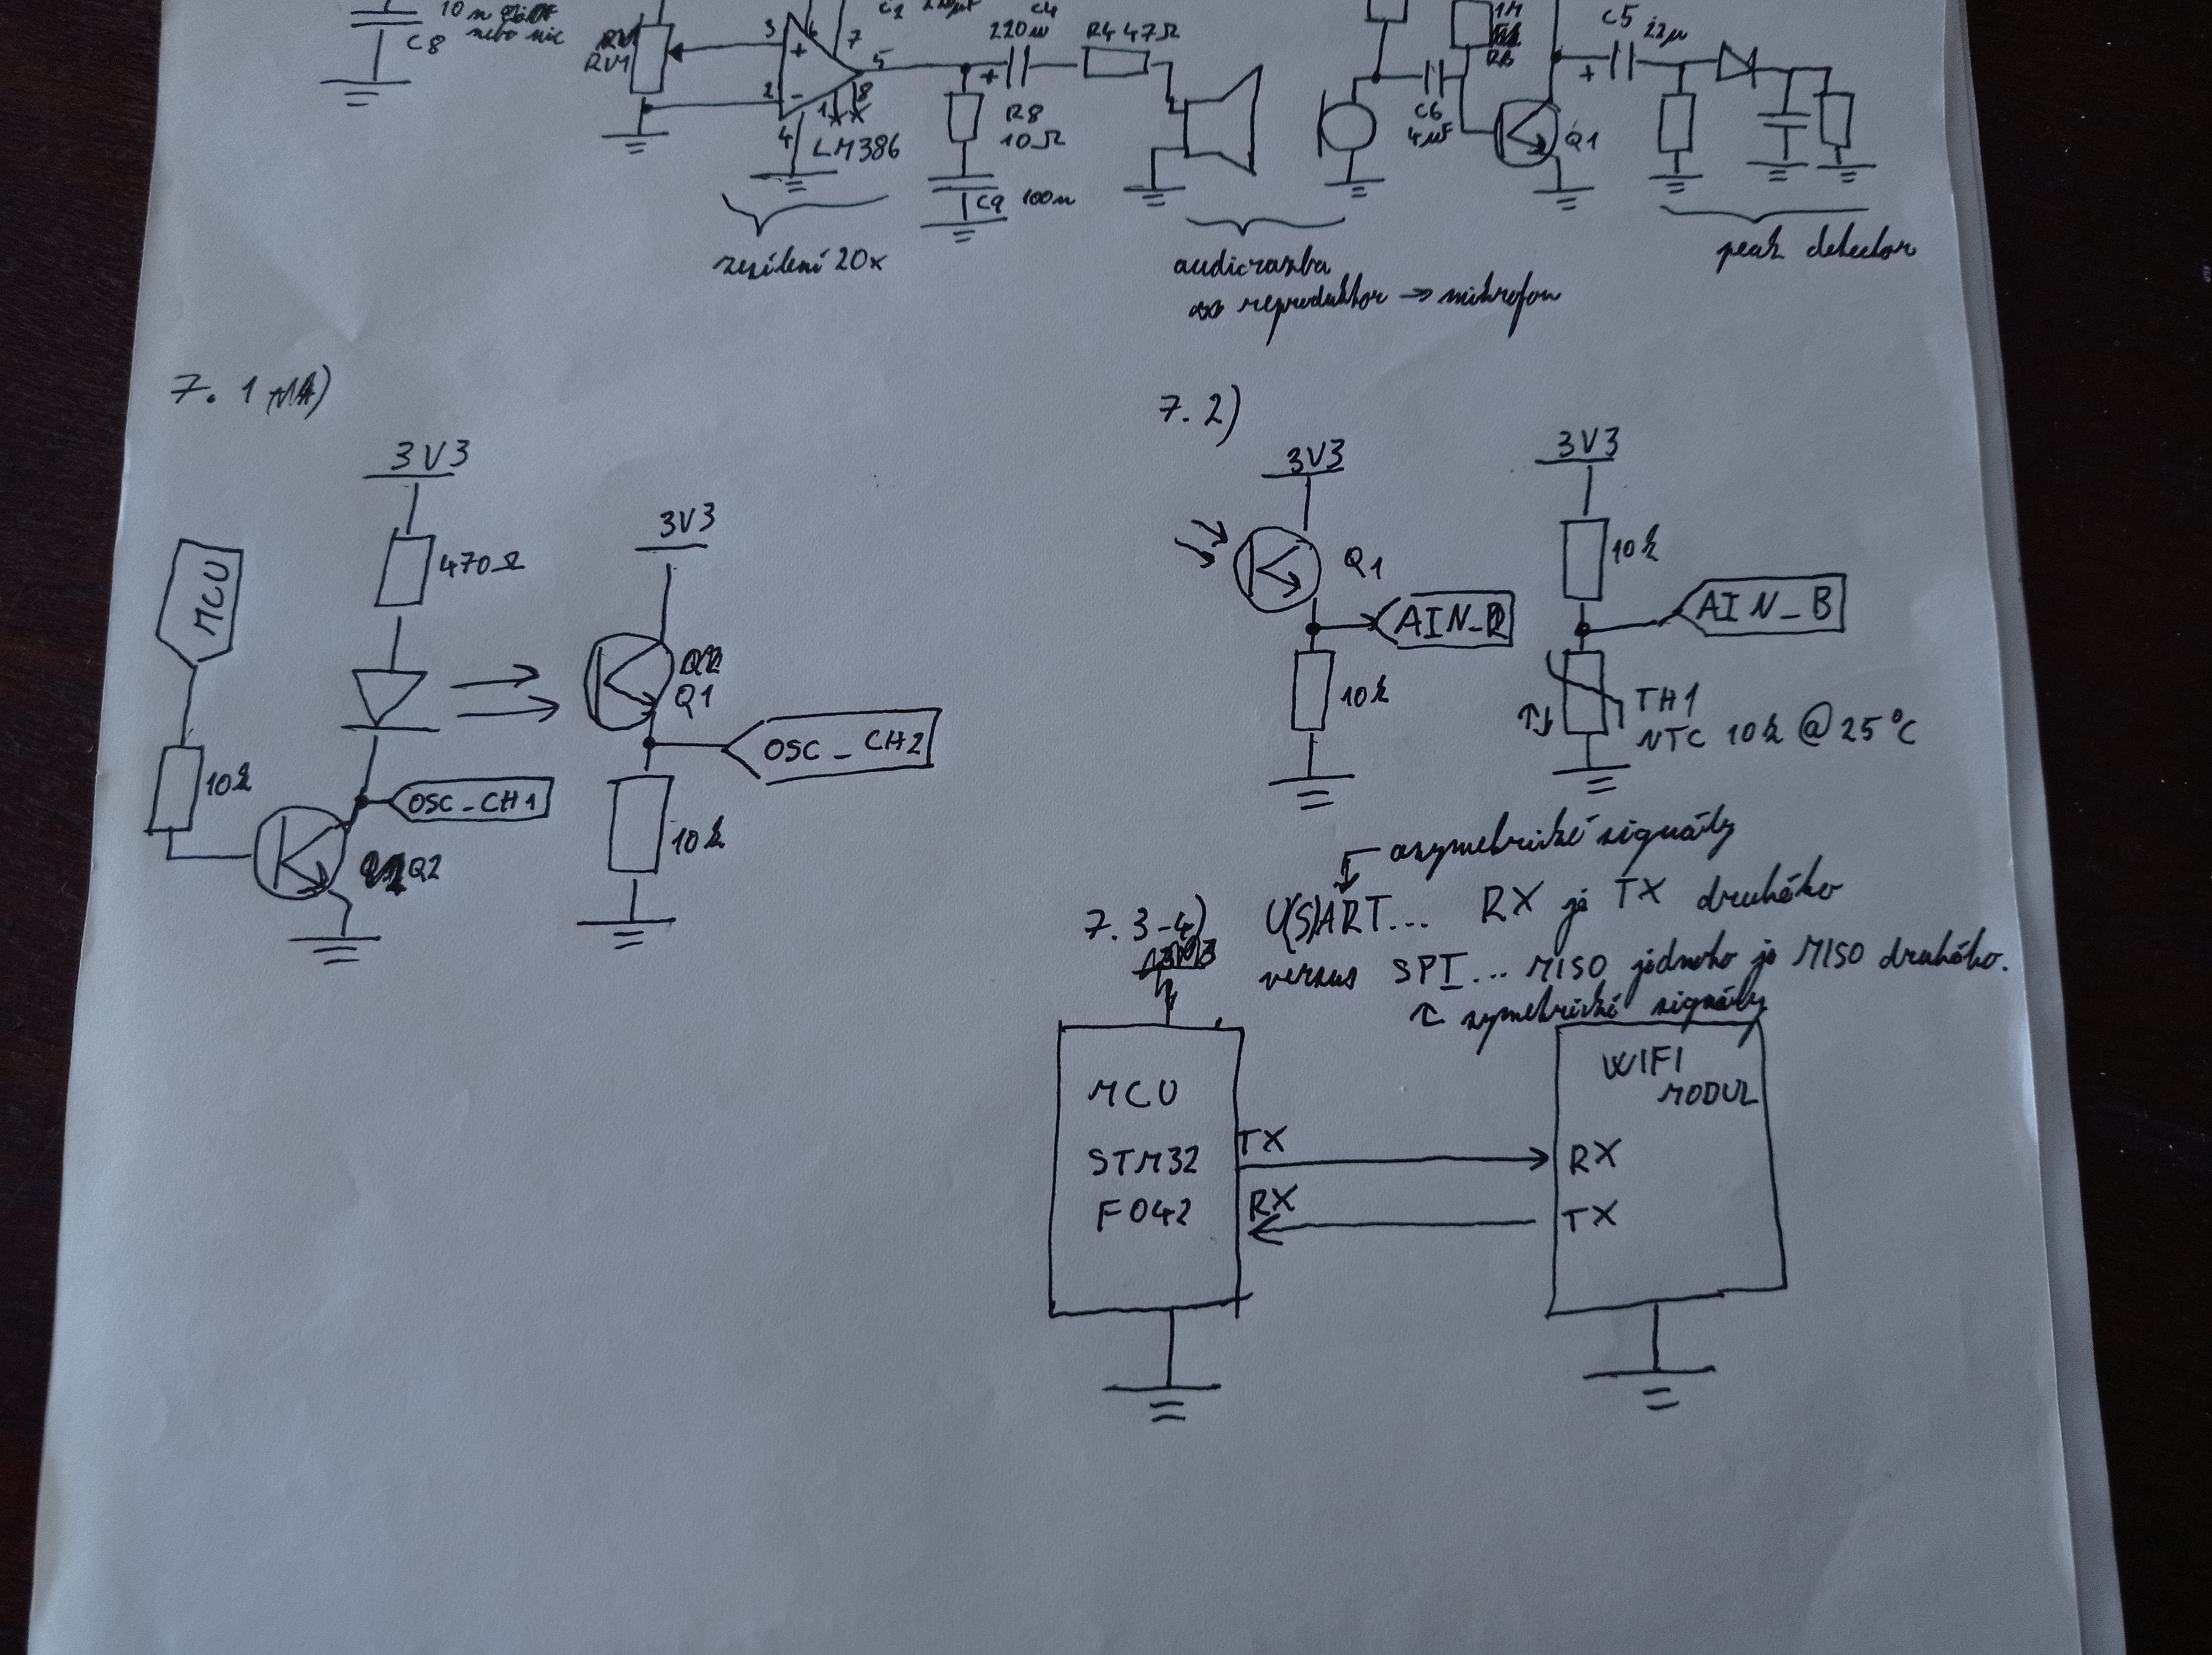 10n
nebo nic
C8
RV1
3
6
7
5
2
1
8
4
+
-
LM386
C4
220u
+
R4 47Ω
R8
10Ω
C9 100n
zesílení 20x
C6
1M
Q1
C5 22μ
+
audiovazba
reproduktor → mikrofon
peak detector
7. 1
3V3
470Ω
MCU
10k
OSC_CH1
Q2
3V3
Q1
OSC_CH2
10k
7. 2)
3V3
Q1
AIN_
10k
3V3
10k
AIN_B
TH1
NTC 10k @ 25°C
asymetrické signály
7. 3-4) U(S)ART... RX je TX druhého
versus SPI... MISO jednoho je MISO druhého.
symetrické signály
MCU
STM32
F042
TX
RX
WIFI
MODUL
RX
TX